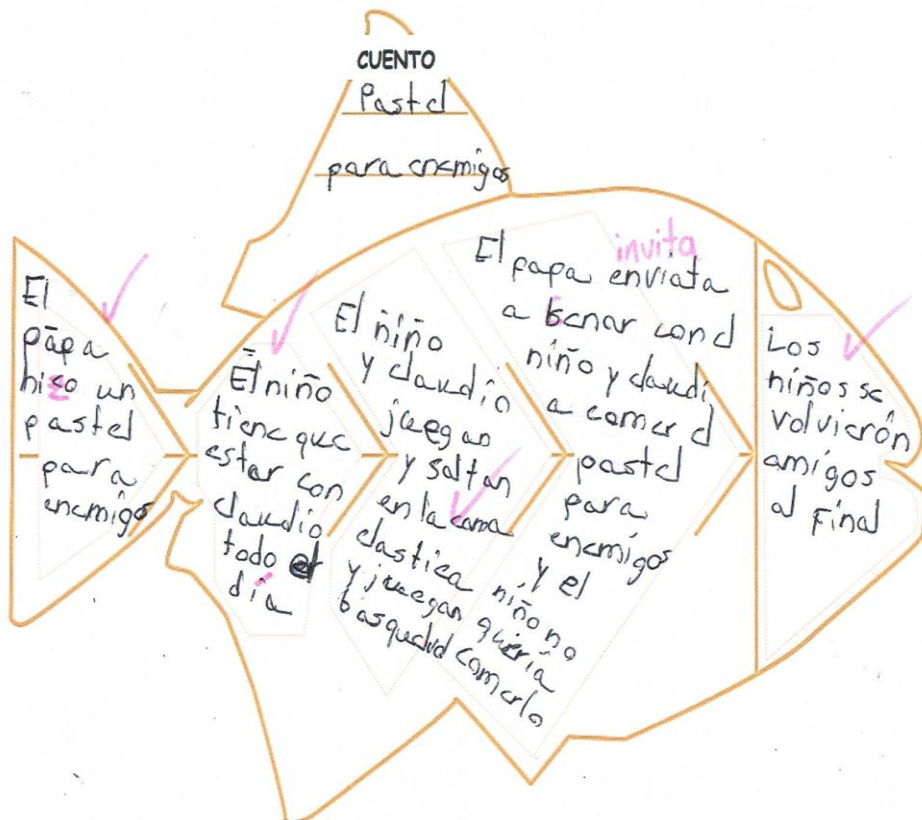 CUENTO
Pastel
para enemigos
El
papa
hiso un
pastel
para
enemigos
El niño
tiene que
estar con
claudio
todo el
día
El niño
y claudio
juegan
y saltan
en la cama
elastica
y juegan
basquetud
invita
El papa enviata
a cenar con el
niño y claudi
a comer el
pastel
para
enemigos
y el
niño no
quería
comerlo
Los
niños se
volvierón
amigos
al Final